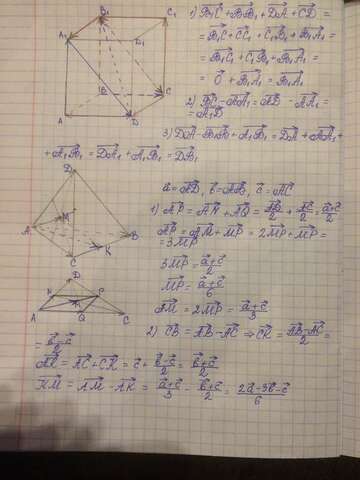 1) B₁C + BB₁ + DA + CD =
= B₁C + CC₁ + C₁B₁ + B₁A₁ =
= B₁C₁ + C₁B₁ + B₁A₁ =
= 0 + B₁A₁ = B₁A₁
2) BC - AA₁ = AD - AA₁ =
= A₁D
3) DA - B₁B + A₁B₁ = DA + AA₁ +
+ A₁B₁ = DA₁ + A₁B₁ = DB₁
B₁
C₁
A₁
D₁
B
C
A
D
a = AD, b = AB, c = AC
1) AP = AN + AQ = AD/2 + AC/2 = a+c/2
AP = AM + MP = 2MP + MP =
= 3MP
3MP = a+c/2
MP = a+c/6
AM = 2MP = a+c/3
D
M
A
B
K
C
D
N
P
A
Q
C
2) CB = AB - AC ⇒ CK = AB-AC/2 =
= b-c/2
AK = AC + CK = c + b-c/2 = b+c/2
KM = AM - AK = a+c/3 - b+c/2 = 2a-3b-c/6